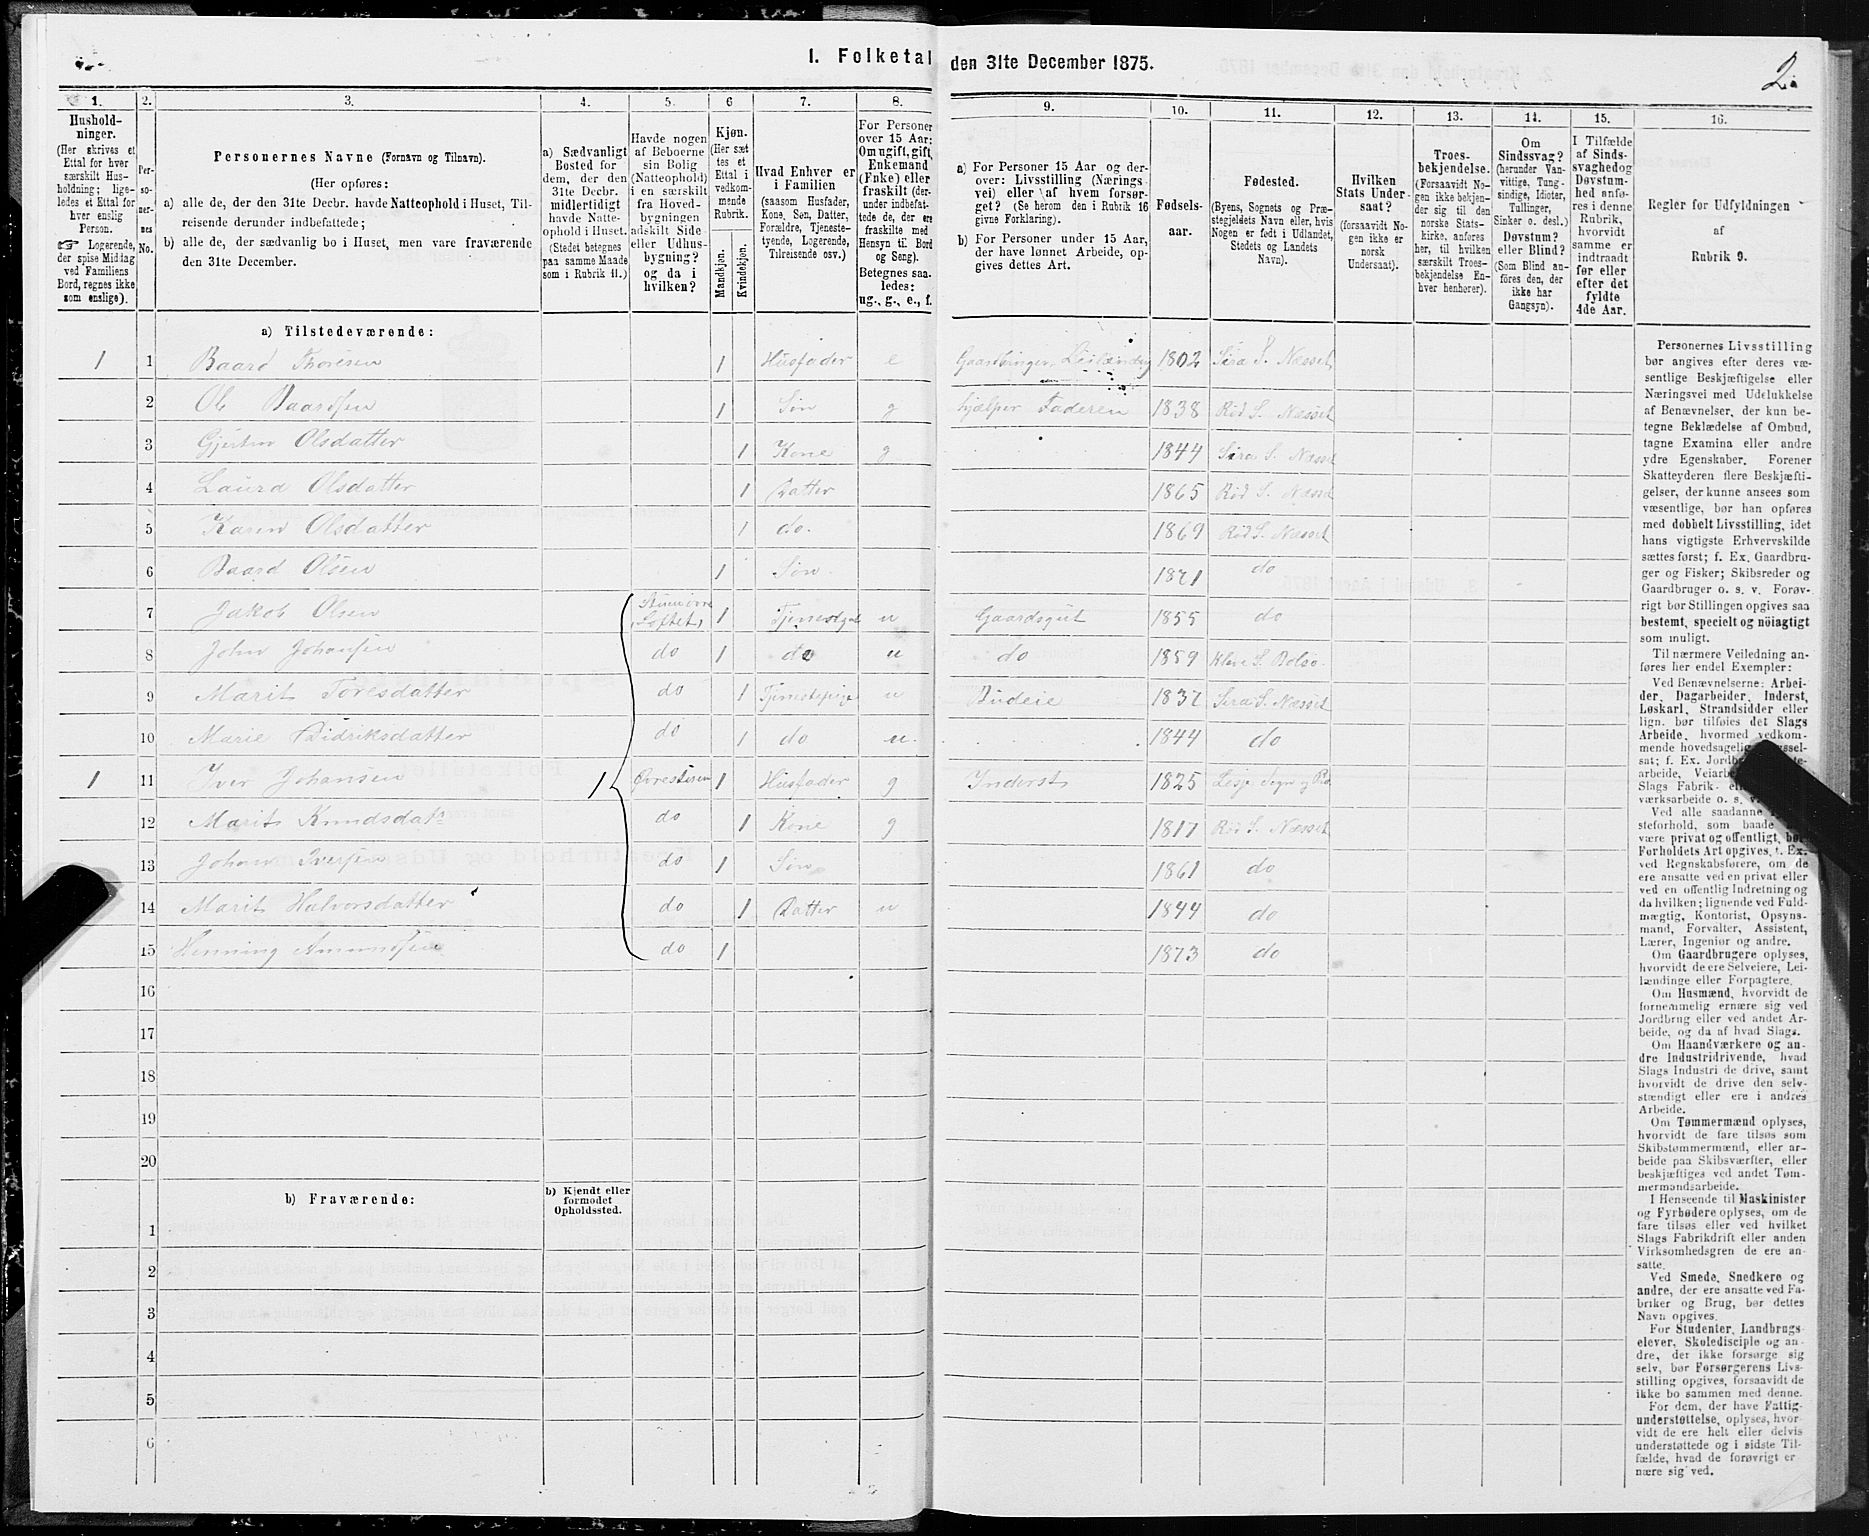 I. Folketal den 31te December 1875.
2.
1.
Hushold-
ninger.
(Her skrives et
Ettal for hver
særskilt Hus-
holdning; lige-
ledes et Ettal for
hver enslig
Person.
☞ Logerende,
der spise Middag
ved Familiens
Bord, regnes ikke
som enslige).
2.
Per-
so-
ner-
nes
No.
3.
Personernes Navne (Fornavn og Tilnavn).
(Her opføres:
a) alle de, der den 31te Decbr. havde Natteophold i Huset, Til-
reisende derunder indbefattede;
b) alle de, der sædvanlig bo i Huset, men vare fraværende
den 31te December.
4.
a) Sædvanligt
Bosted for
dem, der den
31te Decbr.
midlertidigt
havde Natte-
ophold i Huset.
(Stedet betegnes
paa samme Maade
som i Rubrik 11.)
5.
Havde nogen
af Beboerne
sin Bolig
(Natteophold)
i en særskilt
fra Hoved-
bygningen
adskilt Side-
eller Udhus-
bygning?
og da i
hvilken?
6
Kjøn.
(Her sæt
tes et
Ettal i
vedkom-
mende
Rubrik.
Mandkjøn.
Kvindekjøn.
7.
Hvad Enhver er
i Familien
(saasom Husfader,
Kone, Søn, Datter,
Forældre, Tjeneste-
tyende, Logerende,
Tilreisende osv.)
8.
For Personer
over 15 Aar:
Om ugift, gift,
Enkemand
(Enke) eller
fraskilt (der-
under indbefat-
tede de, der ere
fraskilte med
Hensyn til Bord
og Seng).
Betegnes saa-
ledes:
ug., g., e., f.
9.
a) For Personer 15 Aar og der-
over: Livsstilling (Nærings
vei) eller af hvem forsør-
get? (Se herom den i Rubrik 16
givne Forklaring).
b) For Personer under 15 Aar,
der have lønnet Arbeide, op-
gives dettes Art.
10.
Fødsels-
aar.
11.
Fødested.
(Byens, Sognets og Præ-
stegjeldets Navn eller, hvis
Nogen er født i Udlandet,
Stedets og Landets
Navn).
12.
Hvilken
Stats Under-
saat?
(forsaavidt No-
gen ikke er
norsk
Undersaat).
13.
Troes-
bekjendelse.
(Forsaavidt No-
gen ikke bekjen-
der sig til den
norske Stats-
kirke, anføres
her, til hvilken
særskilt Troes-
bekjendelse En-
hver henhører).
14.
Om
Sindssvag?
(herunder Van-
vittige, Tung-
sindige, Idioter,
Tullinger,
Sinker o. desl.)
Døvstum?
eller Blind?
(Som Blind an-
føres den, der
ikke har
Gangsyn).
15.
I Tilfælde
af Sinds-
svaghed og
Døvstum-
hed anfø-
res i denne
Rubrik,
hvorvidt
samme er
indtraadt
før eller
efter det
fyldte
4de Aar.
16.
Regler for Udfyldningen
af
Rubrik 9.
a) Tilstedeværende:
1 1 Baard Thoresen 1 Husfader e Gaardbruger, Leilending 1802 Sira S. Næsset
2 Ole Baardsen 1 Søn g hjælper Faderen 1838 Rød S. Næsset
3 Olsdatter 1 Kone g 1844 Sira S. Næsset
4 Laura Olsdatter 1 Datter 1865 Rød S. Næsset
5 Karen Olsdatter 1 do. 1869 Rød S. Næsset
6 Baard Olsen 1 Søn 1871 do
7 Jakob Olsen 1 u Gaardsgut 1855 do
8 John Johansen do 1 do u do 1859 S. Bolsø
9 Marit Toresdatter do 1 Tjenestepige u Budeie 1837 Sira S. Næsset
10 Marie Didriksdatter do 1 do u. 1844 do
1 11 Iver Johansen 1 1 Husfader g Inderst 1825 Lesje Sogn
12 Marit Knudsdatr do 1 Kone g 1817 Rød S. Næsset
13 Johan Iversen do 1 Søn 1861 do
14 Marit Halvorsdatter do 1 Datter u 1844 do
15 Henning Amundsen do 1 1873 do
16
17
18
19
20
b) Fraværende:
b) Kjendt eller
formodet
Opholdssted.
1
2
3
4
5
6
Personernes Livsstilling
bør angives efter deres væ-
sentlige Beskjæftigelse eller
Næringsvei med Udelukkelse
af Benævnelser, der kun be-
tegne Beklædelse af Ombud,
tagne Examina eller andre
ydre Egenskaber. Forener
Skatteyderen flere Beskjæfti-
gelser, der kunne ansees som
væsentlige, bør han opføres
med dobbelt Livsstilling, idet
hans vigtigste Erhvervskilde
sættes først; f. Ex. Gaardbru-
ger og Fisker; Skibsreder og
Gaardbruger o. s. v. Forøv-
rigt bør Stillingen opgives saa
bestemt, specielt og nöiagtigt
som muligt.
Til nærmere Veiledning an-
føres her endel Exempler:
Ved Benævnelserne: Arbei-
der, Dagarbeider, Inderst,
Løskarl, Strandsidder eller
lign. bør tilføies det Slags
Arbeide, hvormed vedkom-
mende hovedsagelig
sat; f. Ex.
arbeide,
Slags Fabrik-
værksarbeide o. s. v.
Ved alle saadanne
steforhold, som baade
være privat og offentligt, bør
Forholdets Art opgives, f. Ex.
ved Regnskabsførere, om de
ere ansatte ved en privat eller
ved en offentlig Indretning og
da hvilken; lignende ved Fuld-
mægtig, Kontorist, Opsyns-
mand, Forvalter, Assistent,
Lærer, Ingeniør og andre.
Om Gaardbrugere oplyses,
hvorvidt de ere Selveiere, Lei-
lændinge eller Forpagtere.
Om Husmænd, hvorvidt de
fornemmelig ernære sig ved
Jordbrug eller ved andet Ar-
beide, og da af hvad Slags.
Om Haandværkere og an-
dre Industridrivende, hvad
Slags Industri de drive, samt
hvorvidt de drive den selv-
stændigt eller ere i andres
Arbeide.
Om Tømmermænd oplyses,
hvorvidt de fare tilsøs som
Skibstømmermænd, eller ar-
beide paa Skibsværfter, eller
beskjæftiges ved andet Tøm-
mermandsarbeide.
I Henseende til Maskinister
og Fyrbødere oplyses, om de
fare tilsøs eller ved hvilket
Slags Fabrikdrift eller anden
Virksomhedsgren de ere an-
satte.
Ved Smede, Snedkere og
andre, der ere ansatte ved Fa-
briker og Brug, bør dettes
Navn opgives.
For Studenter, Landbrugs-
elever, Skoledisciple og an-
dre, der ikke forsørge sig
selv, bør Forsørgerens Livs-
stilling opgives, forsaavidt de
ikke bo sammen med denne.
For dem, der have Fattig-
understøttelse, oplyses, hvor-
vidt de ere helt eller delvis
understøttede og i sidste Til-
fælde, hvad de forøvrigt er
nære sig ved.